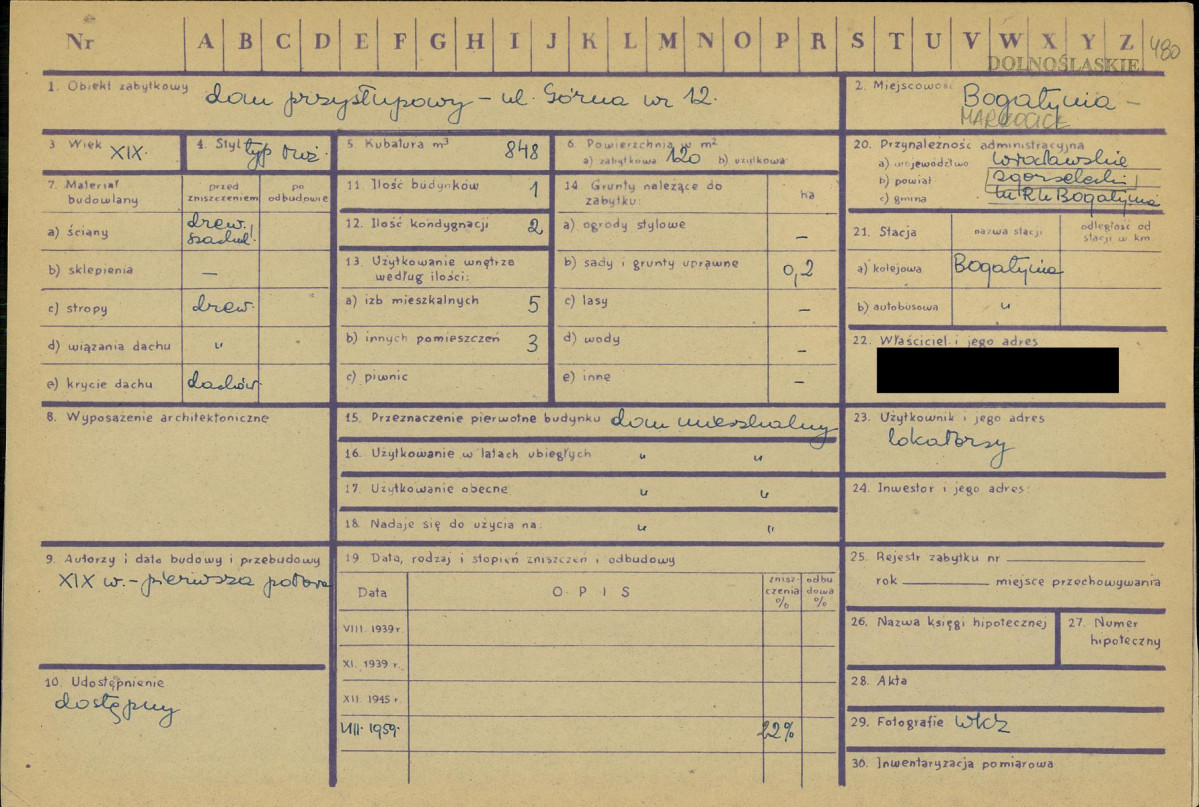 Nr A B C D E F G H I J K L M N O P R S T U V W X Y Z 480
DOLNOŚLĄSKIE
1. Obiekt zabytkowy dom przysłupowy – ul. Górna nr 12.
2. Miejscowość Bogatynia –
MARKOCICE
3 Wiek XIX.
4. Styl typ łuż.
5 Kubatura m³ 848
6. Powierzchnia w m²
a) zabytkowa 120 b) użytkowa
20. Przynależność administracyjna
a) województwo wrocławskie
b) powiat zgorzelecki
c) gmina M R N Bogatynia
7. Materiał budowlany
przed zniszczeniem
po odbudowie
a) ściany drew. szachul.
b) sklepienia —
c) stropy drew.
d) wiązania dachu "
e) krycie dachu dachów.
11. Ilość budynków 1
12. Ilość kondygnacji 2
13. Użytkowanie wnętrza według ilości:
a) izb mieszkalnych 5
b) innych pomieszczeń 3
c) piwnic
14. Grunty należące do zabytku: ha
a) ogrody stylowe –
b) sady i grunty uprawne 0,2
c) lasy –
d) wody –
e) inne –
21. Stacja
nazwa stacji
odległość od stacji w km
a) kolejowa Bogatynia
b) autobusowa "
22. Właściciel i jego adres
8. Wyposażenie architektoniczne
15. Przeznaczenie pierwotne budynku dom mieszkalny
16. Użytkowanie w latach ubiegłych " "
17. Użytkowanie obecne " "
18. Nadaje się do użycia na: " "
23. Użytkownik i jego adres
lokatorzy
24. Inwestor i jego adres:
9. Autorzy i data budowy i przebudowy
XIX w. – pierwsza połowa
19 Data, rodzaj i stopień zniszczeń i odbudowy
Data
O P I S
zniszczenia %
odbudowa %
VIII. 1939 r.
XI. 1939 r.
XII. 1945 r.
VIII. 1959. 22%
25. Rejestr zabytku nr
rok miejsce przechowywania
26. Nazwa księgi hipotecznej
27. Numer hipoteczny
10. Udostępnienie
dostępny
28. Akta
29. Fotografie WKZ
30. Inwentaryzacja pomiarowa